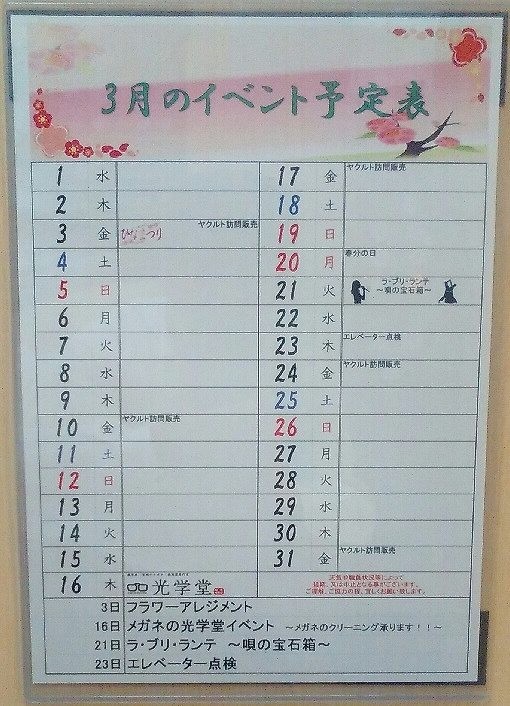 3月のイベント予定表
1 水
2 木
3 金 ひなまつり ヤクルト訪問販売
4 土
5 日
6 月
7 火
8 水
9 木
10 金 ヤクルト訪問販売
11 土
12 日
13 月
14 火
15 水
16 木 光学堂
17 金 ヤクルト訪問販売
18 土
19 日
20 月 春分の日
21 火 ラ・ブリ・ランテ
～唄の宝石箱～
22 水
23 木 エレベーター点検
24 金 ヤクルト訪問販売
25 土
26 日
27 月
28 火
29 水
30 木
31 金 ヤクルト訪問販売
天気や職員状況等によって
延期、又は中止となる事がございます。
ご理解、ご協力の程、宜しくお願い致します。
3日 フラワーアレジメント
16日 メガネの光学堂イベント ～メガネのクリーニング承ります！！～
21日 ラ・ブリ・ランテ ～唄の宝石箱～
23日 エレベーター点検